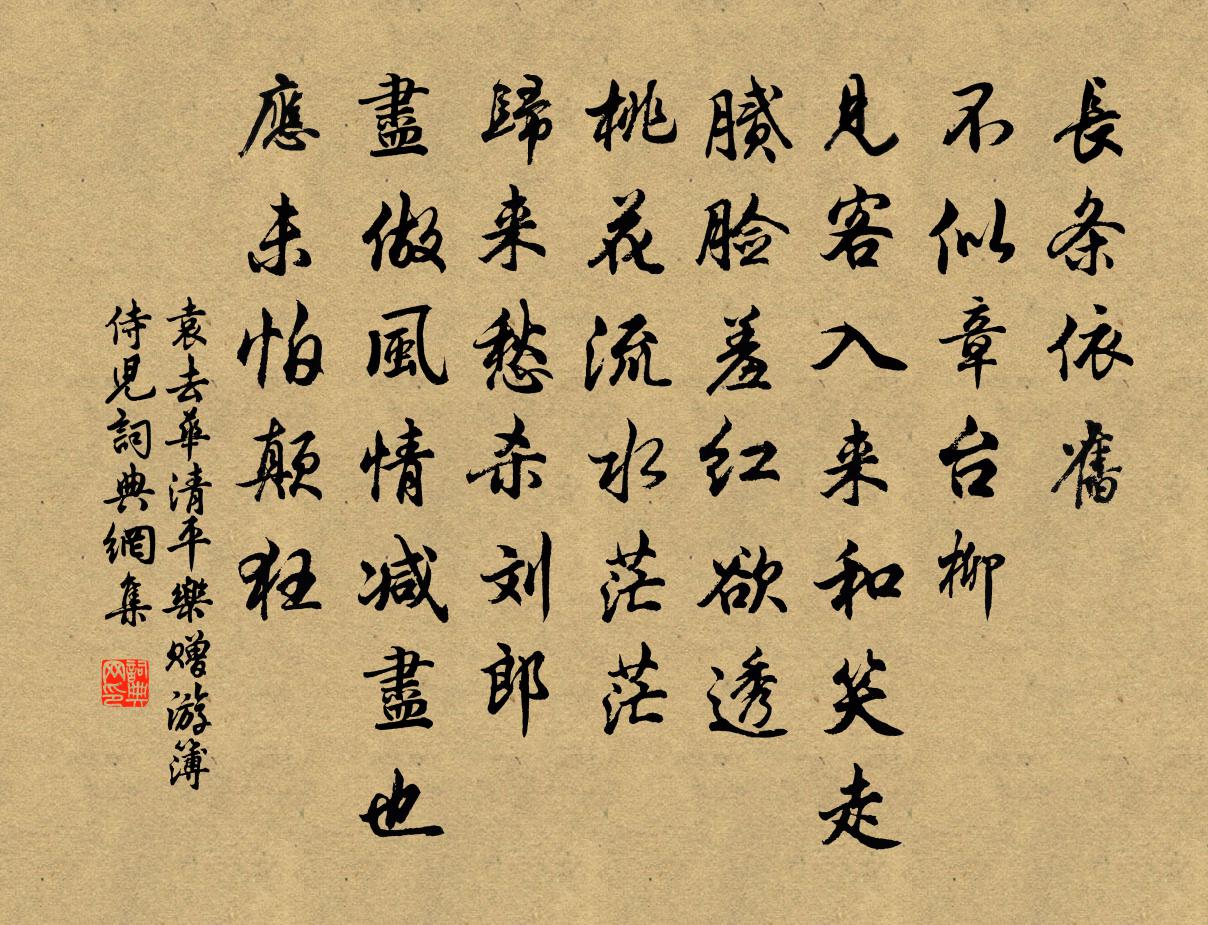 長条依舊
不似章台柳
見客入来和笑走
膩脸羞红欲透
桃花流水茫茫
歸来愁杀刘郎
盡做風情减盡也
應未怕颠狂
袁去華清平樂赠游簿
侍兒詞典網集
詞典
网印